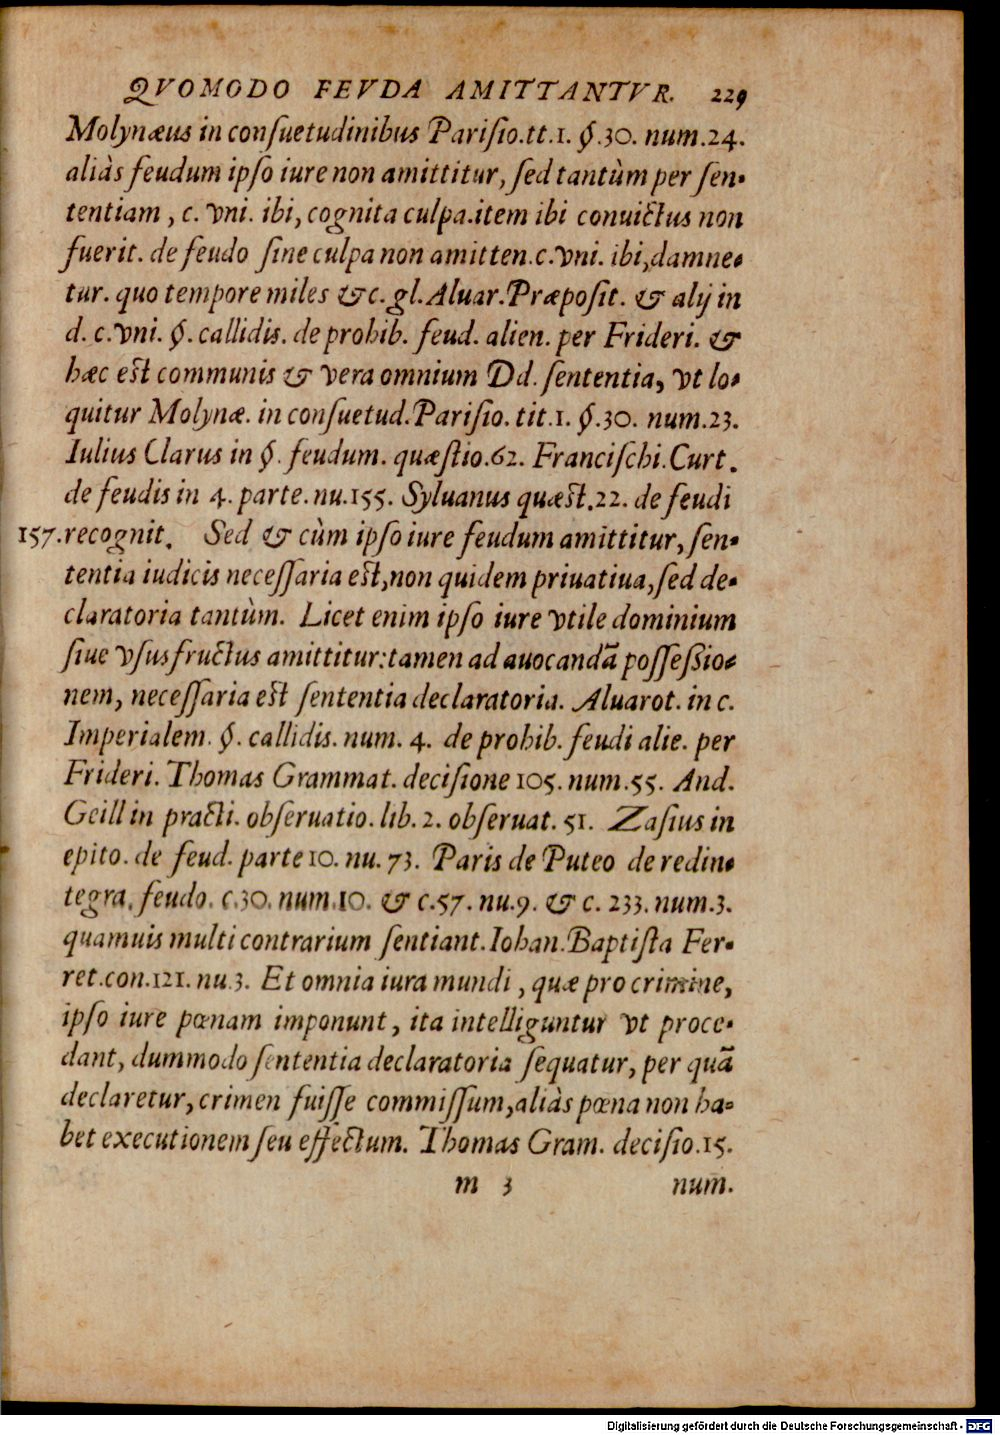 QVOMODO FEVDA AMITTANTVR. 229
Molynæus in conſuetudinibus Pariſio.tt.1. §.30. num.24.
aliàs feudum ipſo iure non amittitur, ſed tantùm per ſen-
tentiam, c. vni. ibi, cognita culpa.item ibi conuictus non
fuerit. de feudo ſine culpa non amitten.c.vni. ibi,damne-
tur. quo tempore miles &c. gl. Aluar. Præpoſit. & alij in
d. c. vni. §. callidis. de prohib. feud. alien. per Frideri. &
hæc eſt communis & vera omnium Dd. ſententia, vt lo-
quitur Molynæ. in conſuetud. Pariſio. tit.1. §.30. num.23.
Iulius Clarus in §. feudum. quæſtio.62. Franciſchi. Curt.
de feudis in 4. parte. nu.155. Syluanus quæſt.22. de feudi
157. recognit. Sed & cùm ipſo iure feudum amittitur, ſen-
tentia iudicis neceſſaria eſt, non quidem priuatiua, ſed de-
claratoria tantùm. Licet enim ipſo iure vtile dominium
ſiue vſusfructus amittitur: tamen ad auocandã poſſeſsio-
nem, neceſſaria eſt ſententia declaratoria. Aluarot. in c.
Imperialem. §. callidis. num. 4. de prohib. feudi alie. per
Frideri. Thomas Grammat. deciſione 105. num.55. And.
Geill in practi. obſeruatio. lib. 2. obſeruat. 51. Zaſius in
epito. de feud. parte 10. nu. 73. Paris de Puteo de redin-
tegra. feudo. c.30. num.10. & c.57. nu.9. & c. 233. num.3.
quamuis multi contrarium ſentiant. Iohan. Baptiſta Fer-
ret.con.121. nu.3. Et omnia iura mundi, quæ pro crimine,
ipſo iure pœnam imponunt, ita intelliguntur vt proce-
dant, dummodo ſententia declaratoria ſequatur, per quã
declaretur, crimen fuiſſe commiſſum, aliàs pœna non ha-
bet executionem ſeu effectum. Thomas Gram. deciſio.15.
m 3 num.
Digitalisierung gefördert durch die Deutsche Forschungsgemeinschaft - DFG